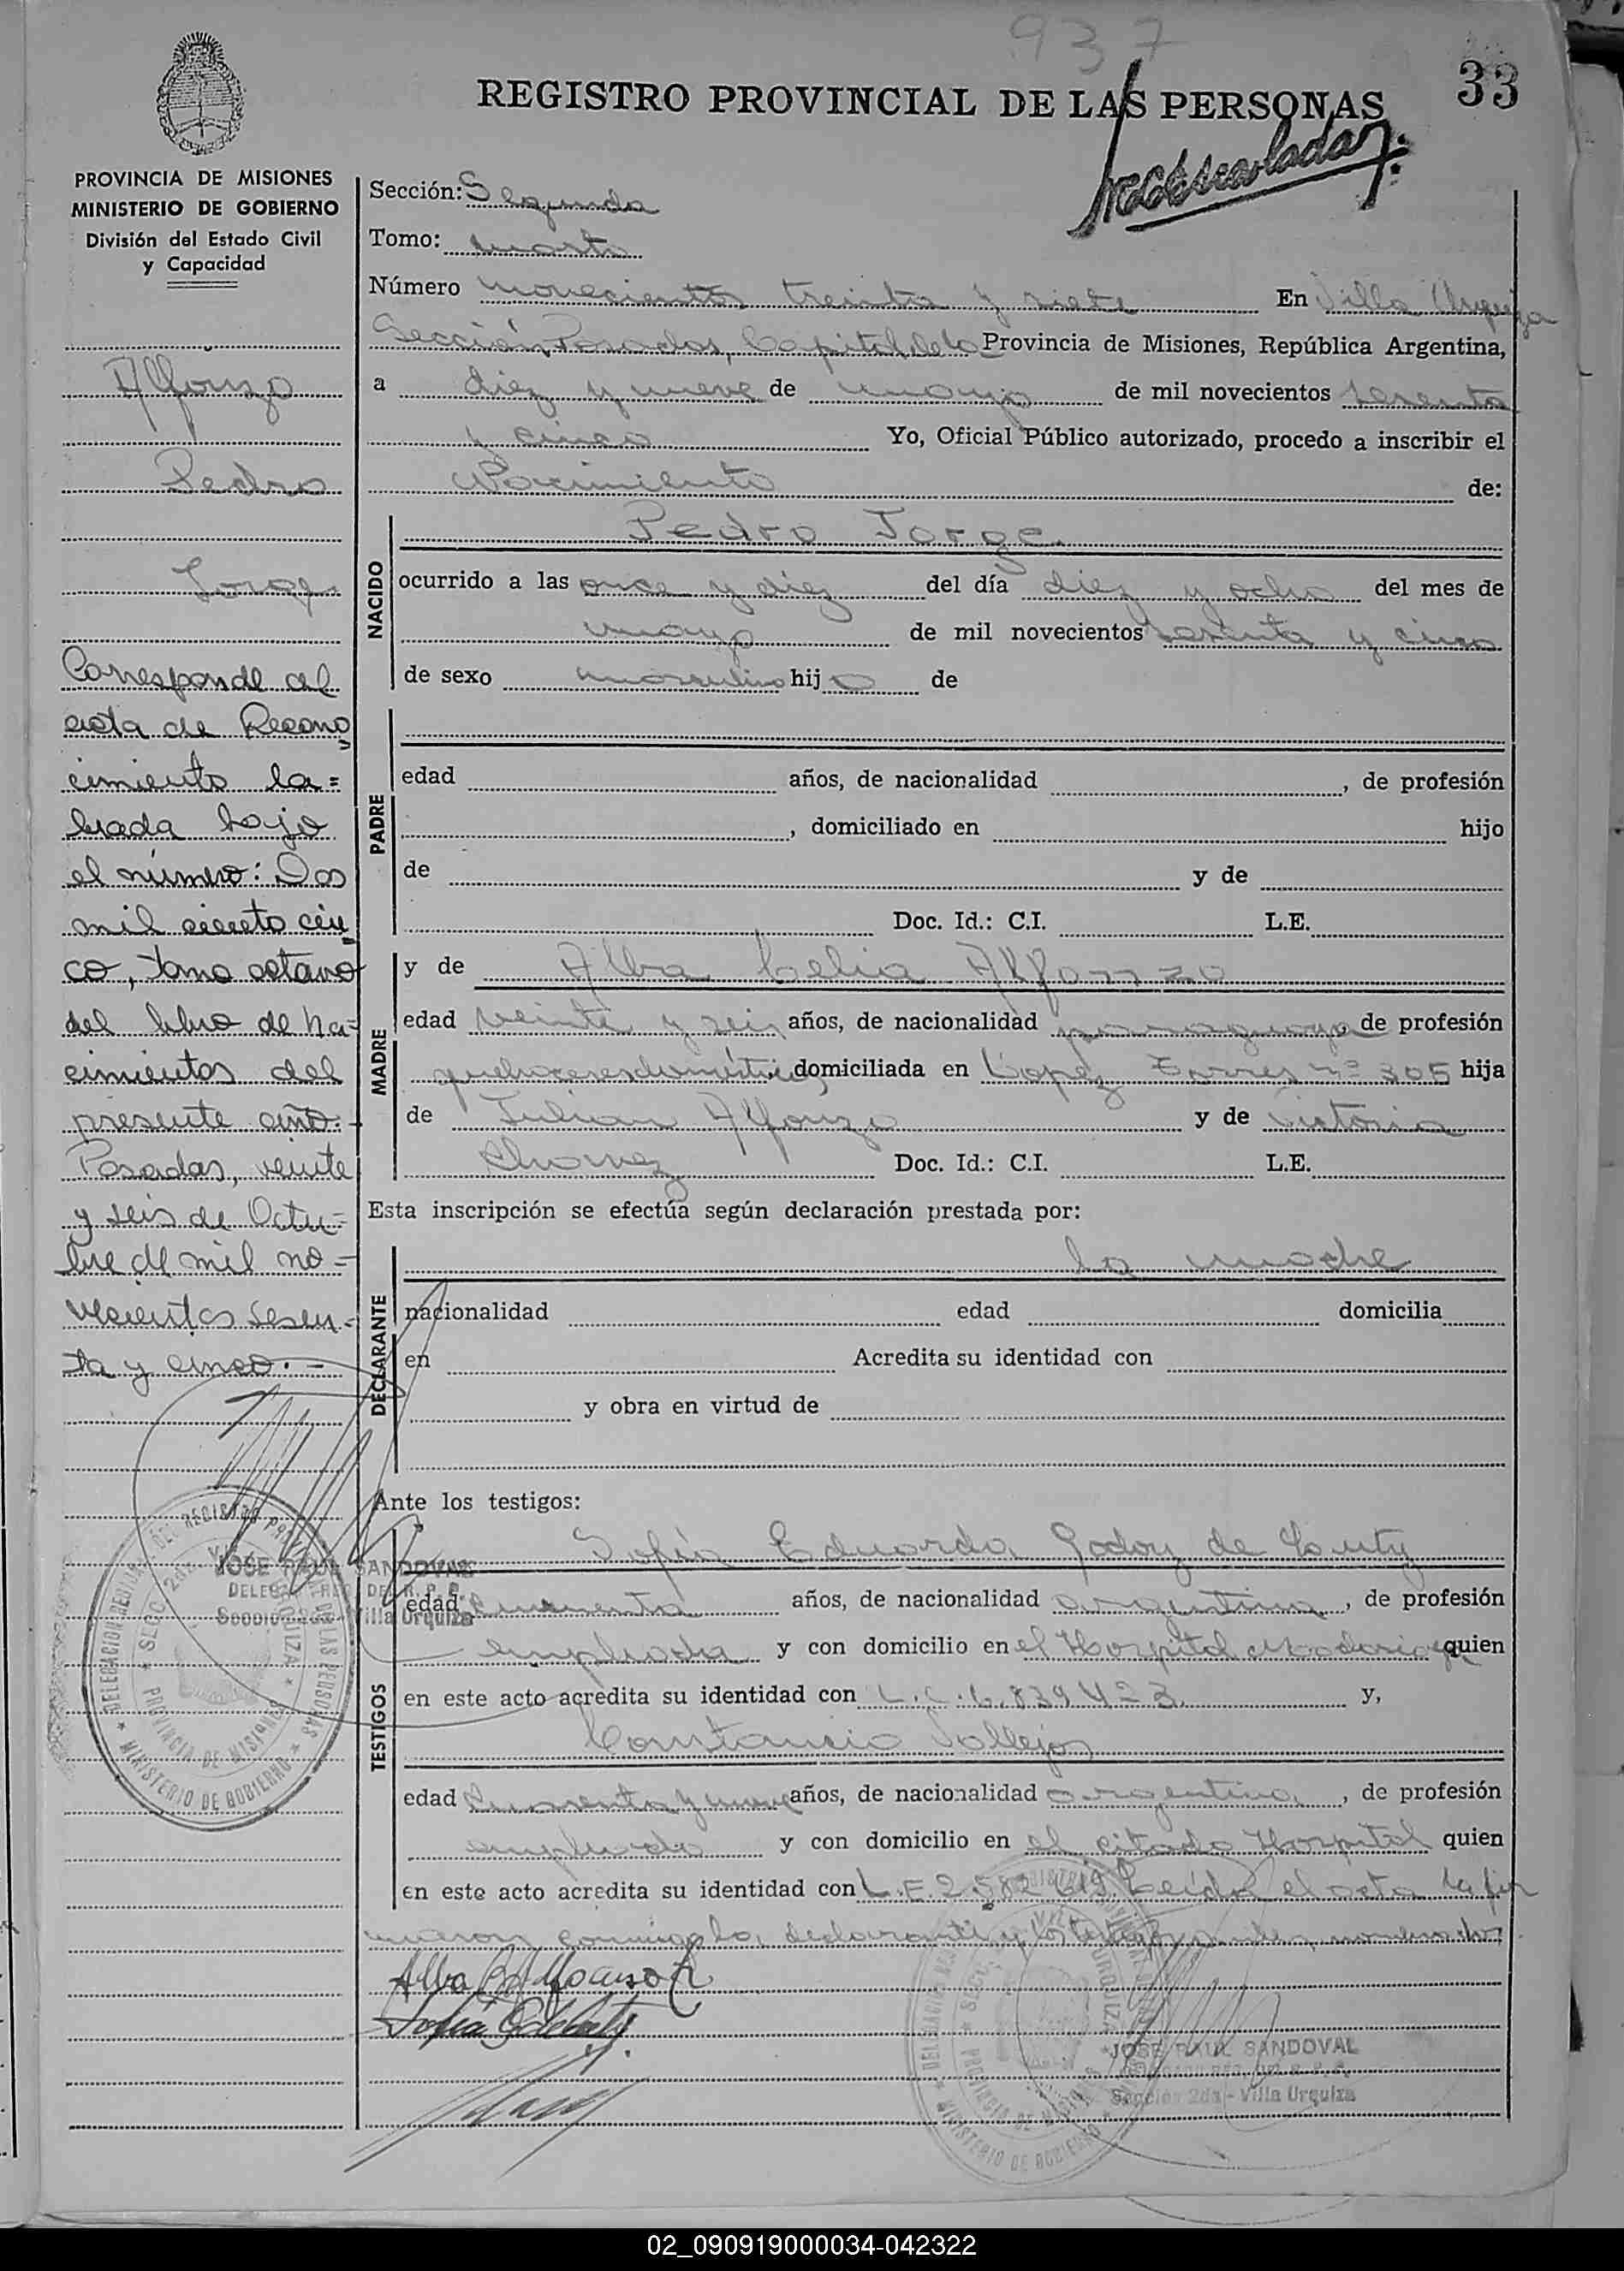 937
33
REGISTRO PROVINCIAL DE LAS PERSONAS
PROVINCIA DE MISIONES
MINISTERIO DE GOBIERNO
División del Estado Civil
y Capacidad
Alfonzo
Pedro
Jorge
Corresponde al
acta de Recono
cimiento la=
brada bajo
el número: Dos
mil ciento cin
co, tomo octavo
del libro de Na-
cimientos del
presente año.-
Posadas, veinte
y seis de Octu=
bre de mil no-
vecientos sesen-
ta y cinco.-
Sección: Segunda
Tomo: cuarto
Número novecientos treinta y siete En Villa Urquiza
Sección Posadas, Capital de la Provincia de Misiones, República Argentina,
a diez y nueve de mayo de mil novecientos sesenta
y cinco Yo, Oficial Público autorizado, procedo a inscribir el
Nacimiento de:
NACIDO
Pedro Jorge
ocurrido a las once y diez del día diez y ocho del mes de
mayo de mil novecientos sesenta y cinco
de sexo masculino hijo de
PADRE
edad años, de nacionalidad , de profesión
, domiciliado en hijo
de y de
Doc. Id.: C.I. L.E.
MADRE
y de Alba Celia Alfonzo
edad veinte y seis años, de nacionalidad paraguaya de profesión
quehaceres domésticos domiciliada en Lopez Torres nº 305 hija
de Julian Alfonzo y de Victoria
Doc. Id.: C.I. L.E.
Esta inscripción se efectúa según declaración prestada por:
DECLARANTE
la madre
nacionalidad edad domicilia
en Acredita su identidad con
y obra en virtud de
Ante los testigos:
TESTIGOS
Sofia Eduarda Godoy de
edad años, de nacionalidad argentina, de profesión
empleada y con domicilio en el Hospital Madariaga quien
en este acto acredita su identidad con L.C. 6.839.423 y,
Constancio Vallejos
edad años, de nacionalidad argentina, de profesión
empleado y con domicilio en el citado Hospital quien
en este acto acredita su identidad con L.E. 2.582.619. Leída el acta la fir
maron conmigo la declarante y los testigos nombrados
JOSE RAUL SANDOVAL
DEL R. P. P.
Sección 2da - Villa Urquiza
DELEGACION DEL REGISTRO PROVINCIAL DE LAS PERSONAS
MINISTERIO DE GOBIERNO
PROVINCIA DE MISIONES
JOSE RAUL SANDOVAL
Sección 2da - Villa Urquiza
02_090919000034-042322